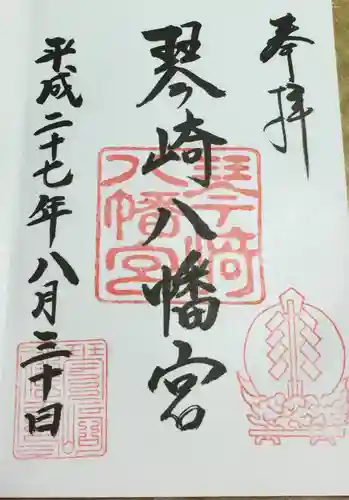 奉拝
琴崎八幡宮
平成二十七年八月三十日
琴崎
八幡宮